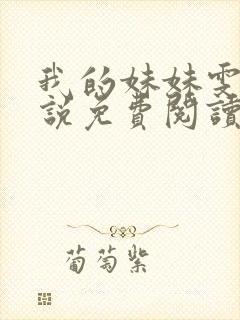 我的妹妹雯
說免費閱讀
葡萄紫